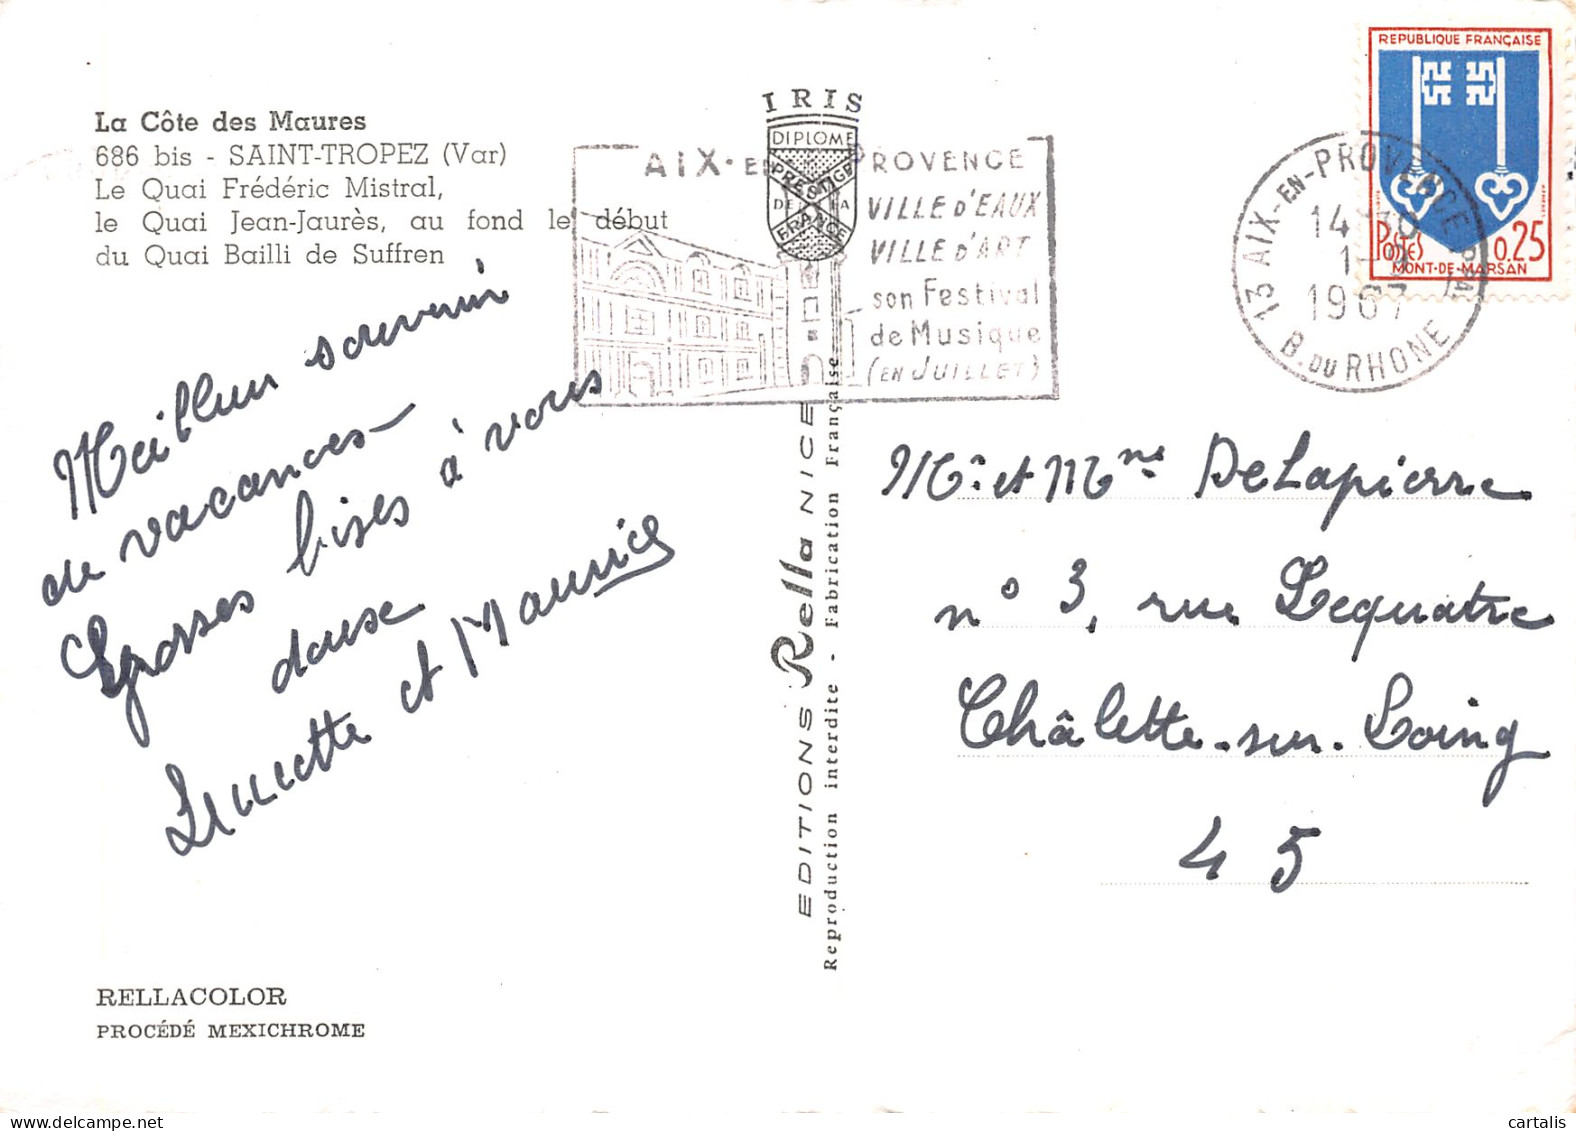 La Côte des Maures
686 bis - SAINT-TROPEZ (Var)
Le Quai Frédéric Mistral,
le Quai Jean-Jaurès, au fond le début
du Quai Bailli de Suffren
Meilleur souvenir
de vacances
Grosses bises à vous
deux
et Maurice
RELLACOLOR
PROCÉDÉ MEXICHROME
IRIS
DIPLOME
PRESTIGE
DE LA
FRANCE
AIX-EN-PROVENCE
VILLE D'EAUX
VILLE D'ART
son Festival
de Musique
(EN JUILLET)
EDITIONS Rella NICE
Reproduction interdite - Fabrication Française
13 AIX-EN-PROVENCE
14-30
1967
B. DU RHONE
REPUBLIQUE FRANÇAISE
POSTES
0.25
MONT-DE-MARSAN
Mr et Mme Delapierre
n° 3, rue Lequatre
Châlette-sur-Loing
45
cartalis